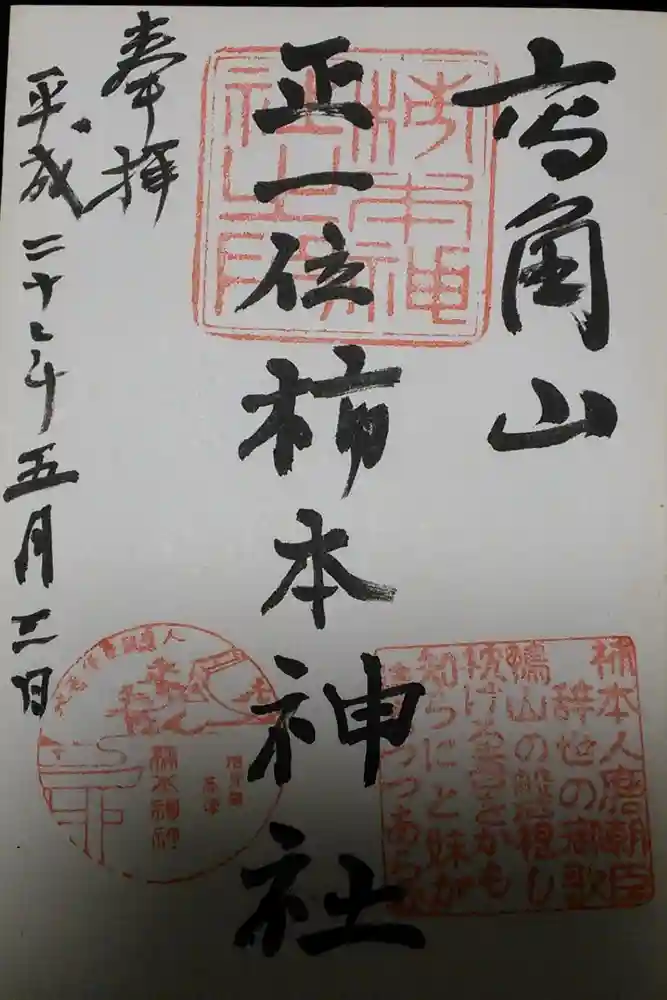 高角山
正一位柿本神社
奉拝
平成二十七年五月
柿本神
柿本人麿朝臣
辞世の御歌
鴨山の磐根し
枕ける吾をかも
知らにと妹が
つつあらむ
柿本神社